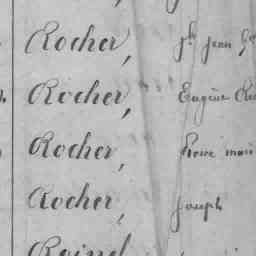 Rocher, Jh Jean
Rocher, Eugène
Rocher, Rose
Rocher, Joseph